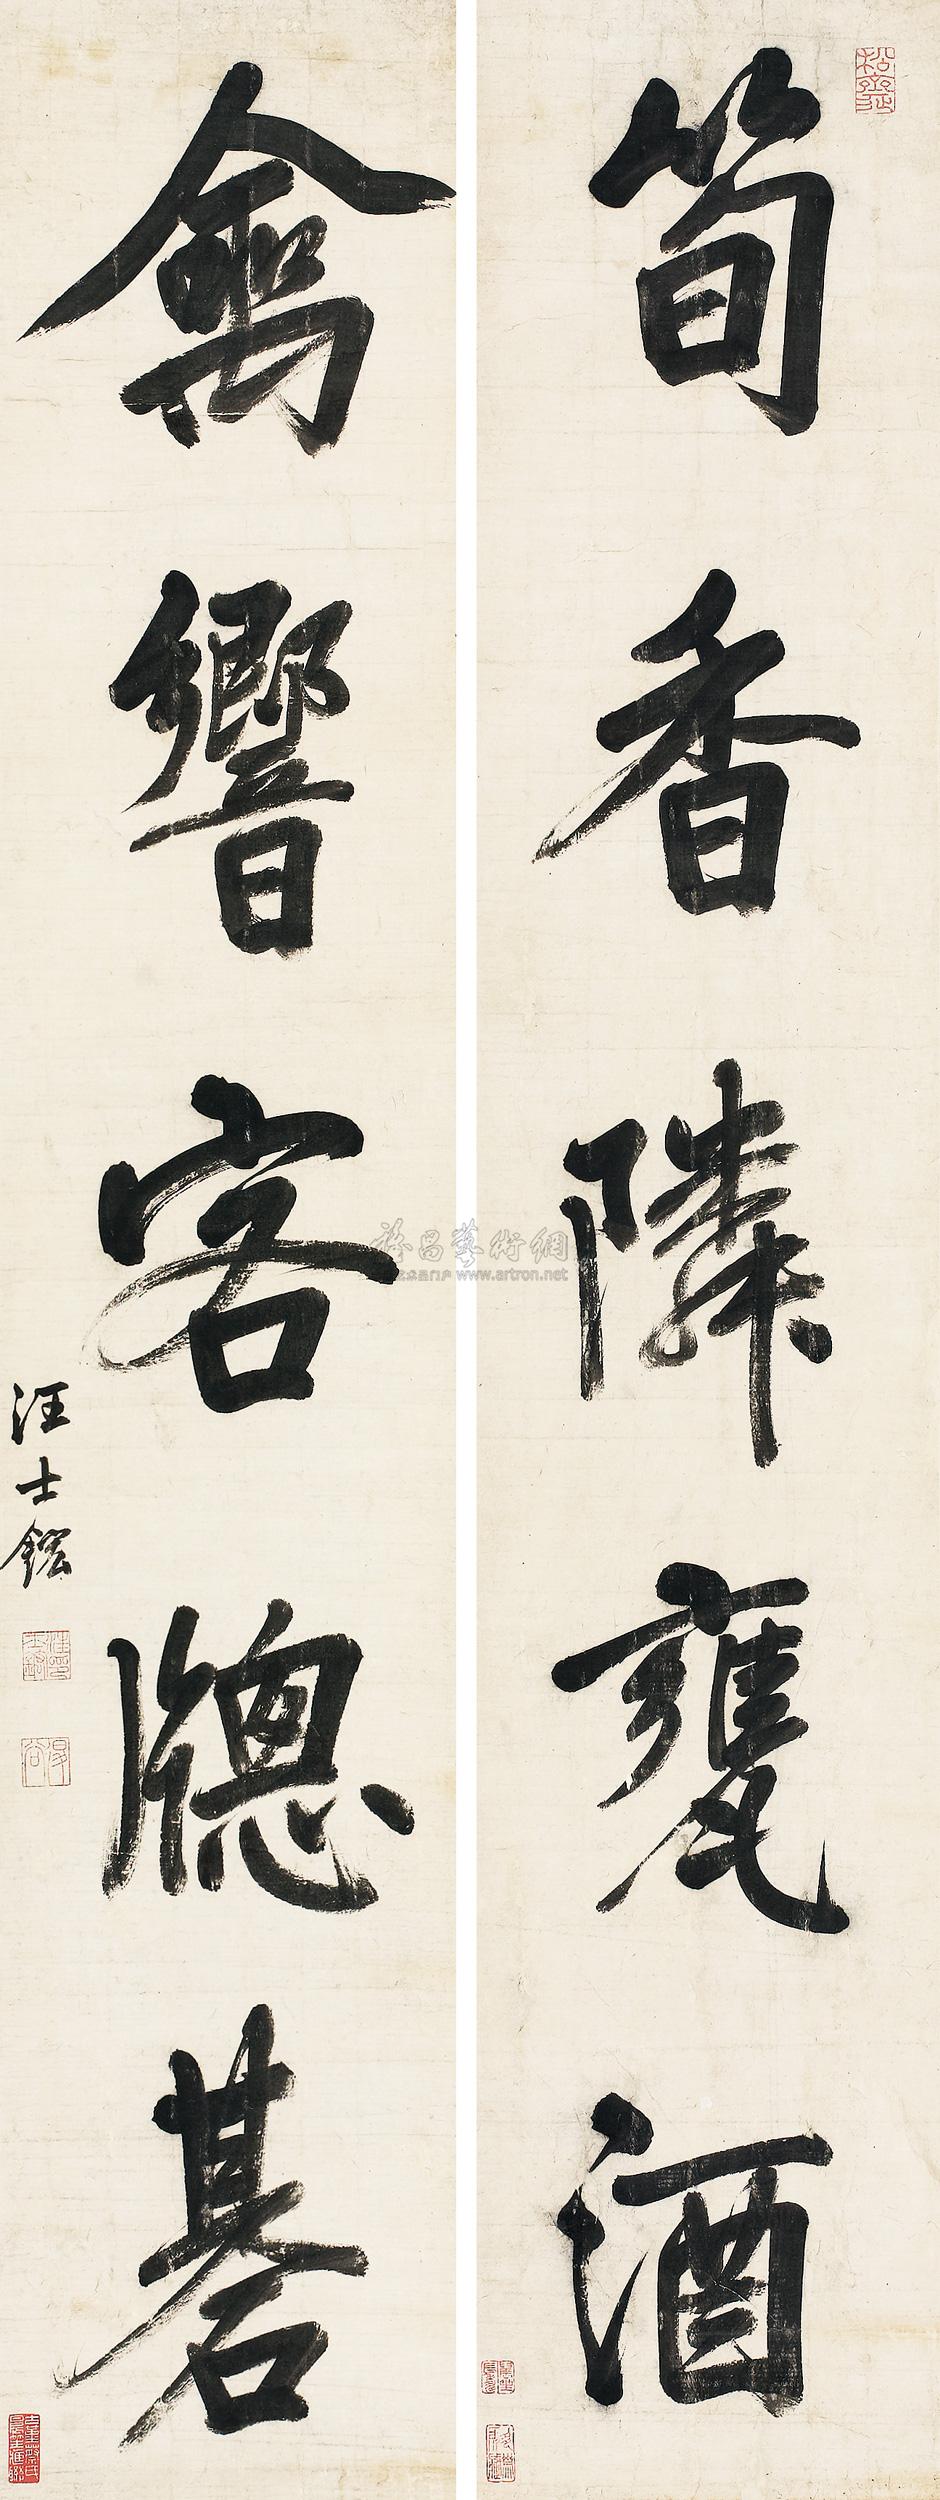 筍香隣甕酒
禽響客牕碁
汪士鋐
雅昌藝術網
www.artron.net